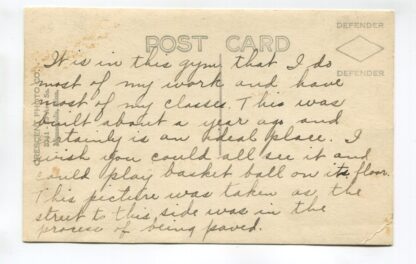 DEFENDER
POST CARD
DEFENDER
It is in this gym that I do
most of my work and have
most of my classes. This was
built about a year ago and
certainly is an ideal place. I
wish you could all see it and
could play basket ball on its floor.
This picture was taken as the
street to this side was in the
process of being paved.
CRESCENT PHOTO CO.